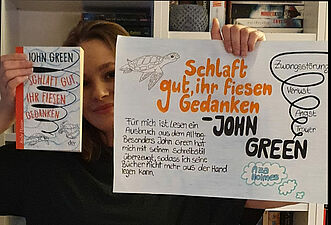 JOHN GREEN
SCHLAFT GUT,
IHR FIESEN
GEDANKEN
Schlaft
gut, ihr fiesen
Gedanken
-JOHN
GREEN
Zwangsstörung
Verlust
Angst
Trauer
Für mich ist Lesen ein
Ausbruch aus dem Alltag.
Besonders John Green hat
mich mit seinem Schreibstil
überzeugt, sodass ich seine
Bücher nicht mehr aus der Hand
legen kann.
Aza
Holmes